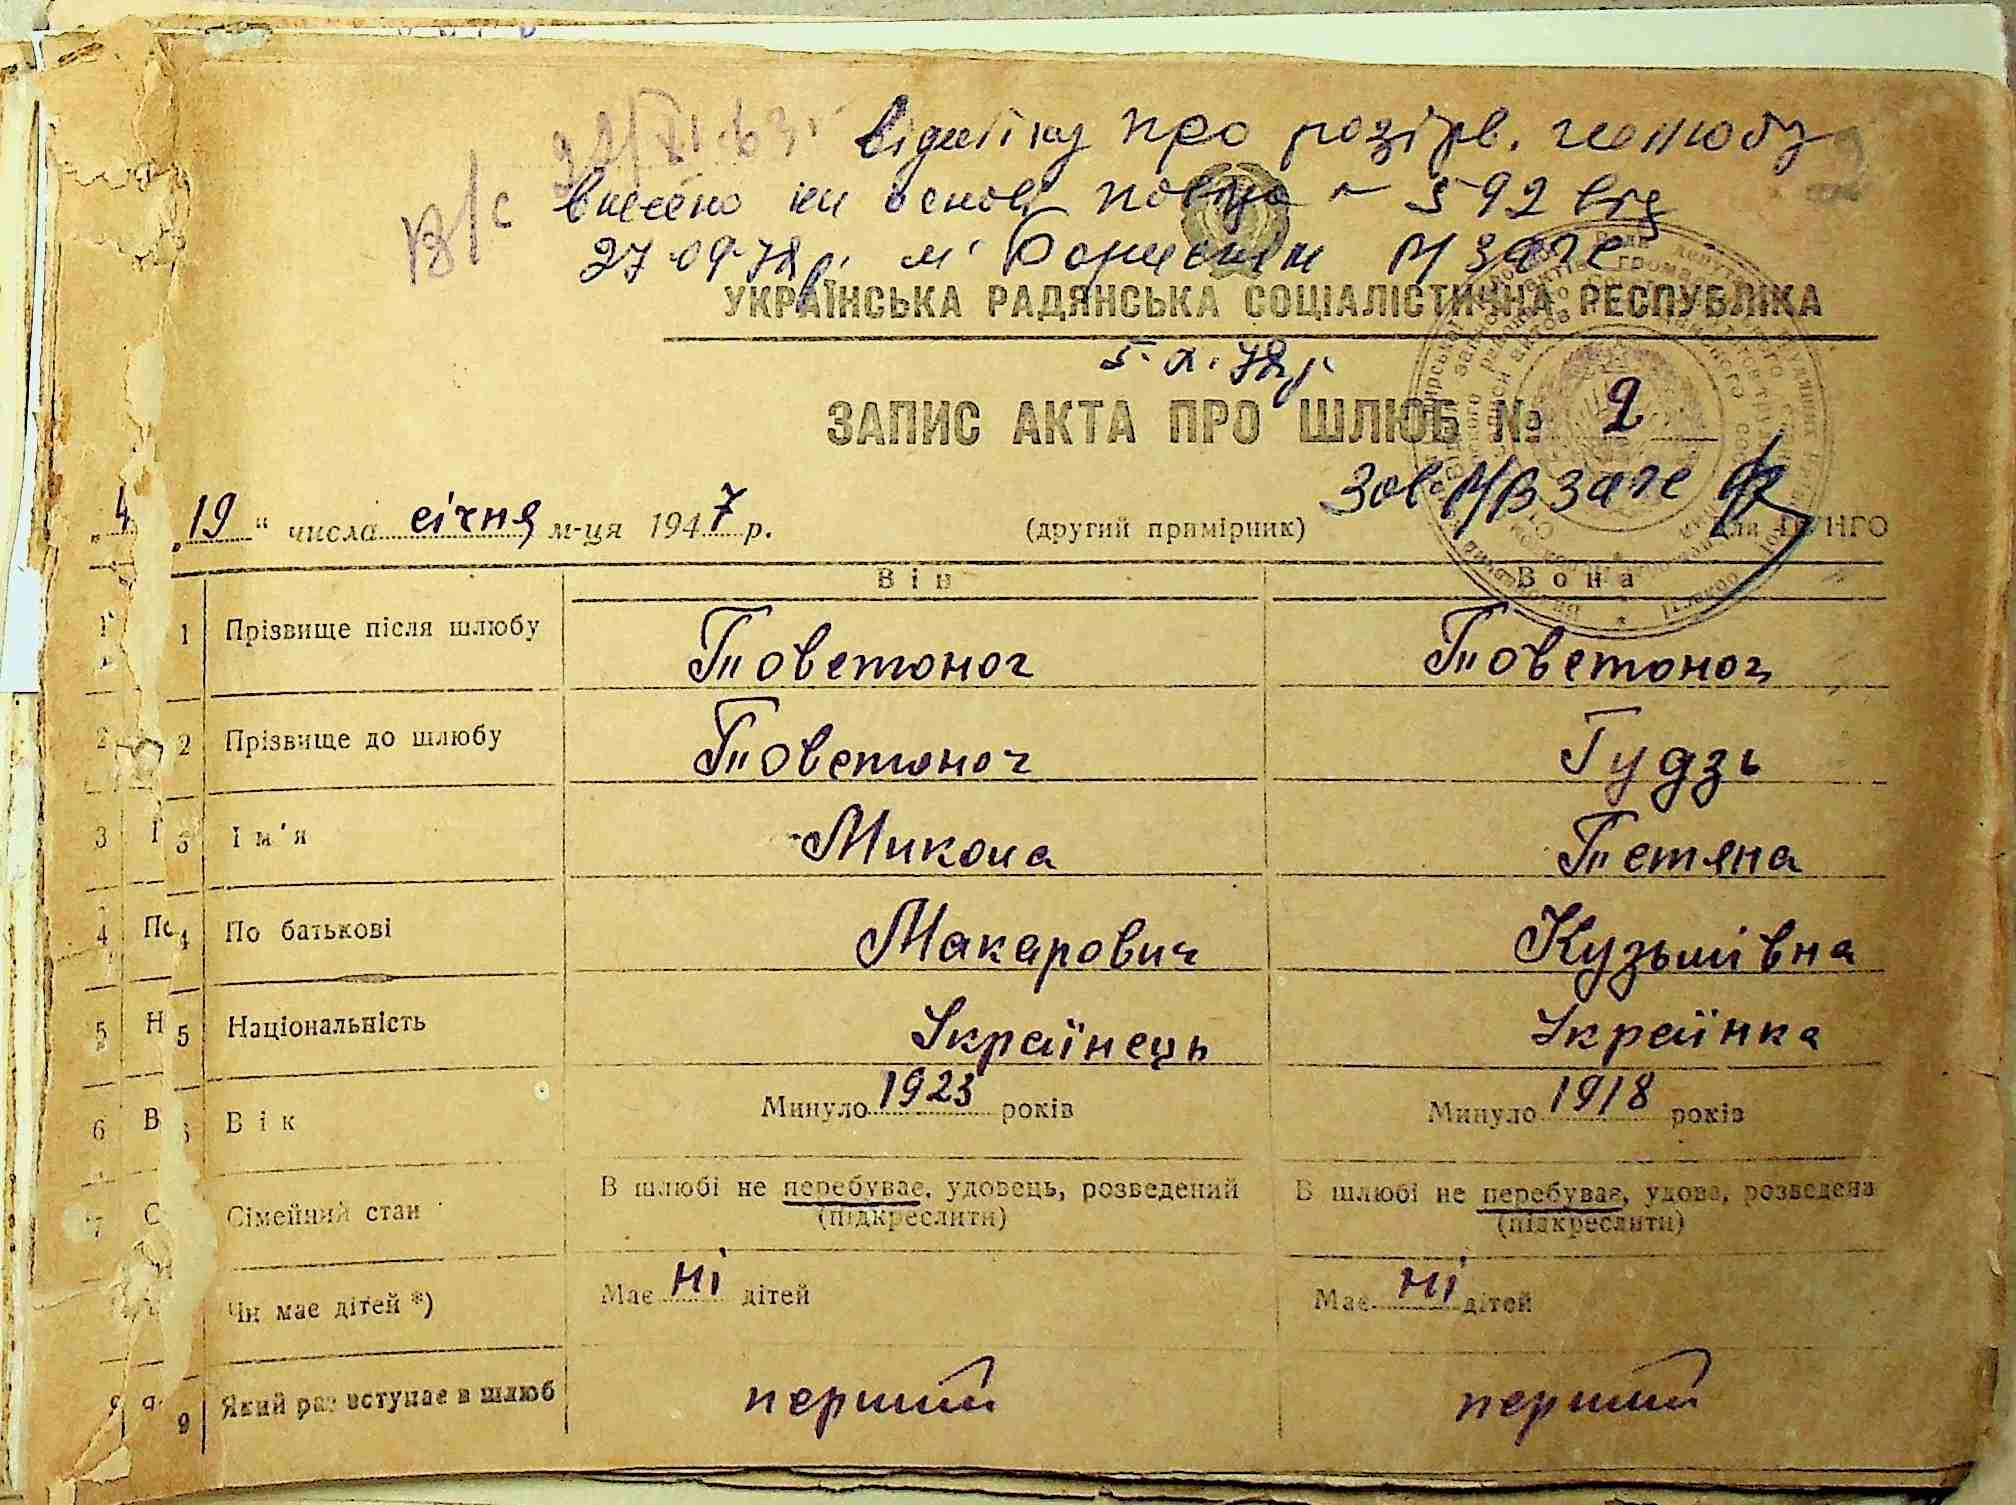 В/с 22/XI-63г
відмітку про розірв. шлюбу
внесено на основі повід. № 592 від
27.09.78р. м. Бориспіль МЗАГС
УКРАЇНСЬКА РАДЯНСЬКА СОЦІАЛІСТИЧНА РЕСПУБЛІКА
5.X.78р
ЗАПИС АКТА ПРО ШЛЮБ № 2
Зав. МВЗАГС
„19“ числа січня м-ця 1947 р. (другий примірник) для ЦУНГО
Він Вона
1 Прізвище після шлюбу Товстоног Товстоног
2 Прізвище до шлюбу Товстоног Гудзь
3 Ім'я Микола Тетяна
4 По батькові Макарович Кузьмівна
5 Національність Українець Українка
6 Вік Минуло 1923 років Минуло 1918 років
7 Сімейний стан В шлюбі не перебуває, удовець, розведений В шлюбі не перебуває, удова, розведена
(підкреслити) (підкреслити)
Чи має дітей *) Має ні дітей Має ні дітей
9 Який раз вступає в шлюб перший перший